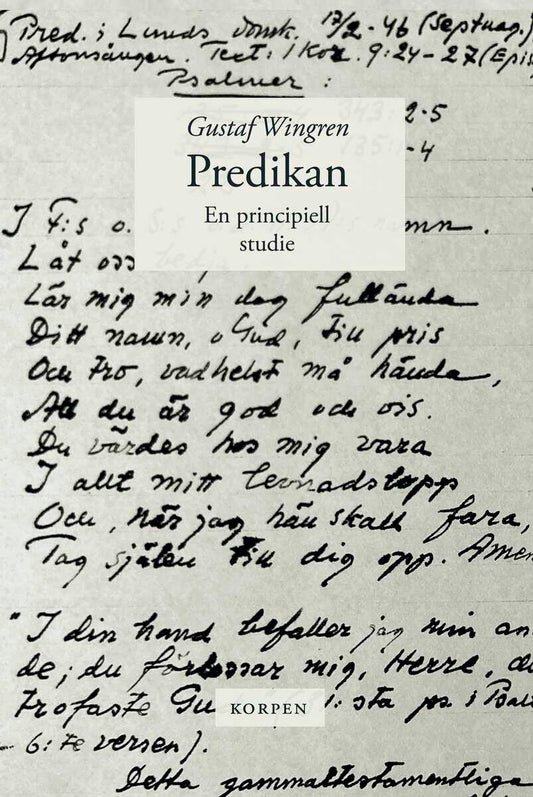 Pred. i Lunds domk. 17/2 - 46 (Septuag.)
Aftonsången. Text: 1 Kor. 9:24-27 (Epis
Psalmer :
343: 2-5
135: 1-4
Gustaf Wingren
Predikan
En principiell
studie
I F:s o. S:s namn.
Låt oss bedja
Lär mig min dag fullända
Ditt namn, o Gud, till pris
Och tro, vadhelst må hända,
Att du är god och vis.
Du värdes hos mig vara
I allt mitt levnadslopp
Och, när jag hän skall fara,
Tag själen till dig opp. Amen
"I din hand befaller jag min an-
de; du förlossar mig, Herre, du
trofaste Gu :sta ps i Psalt
- 6:te versen).
KORPEN
Detta gammaltestamentliga